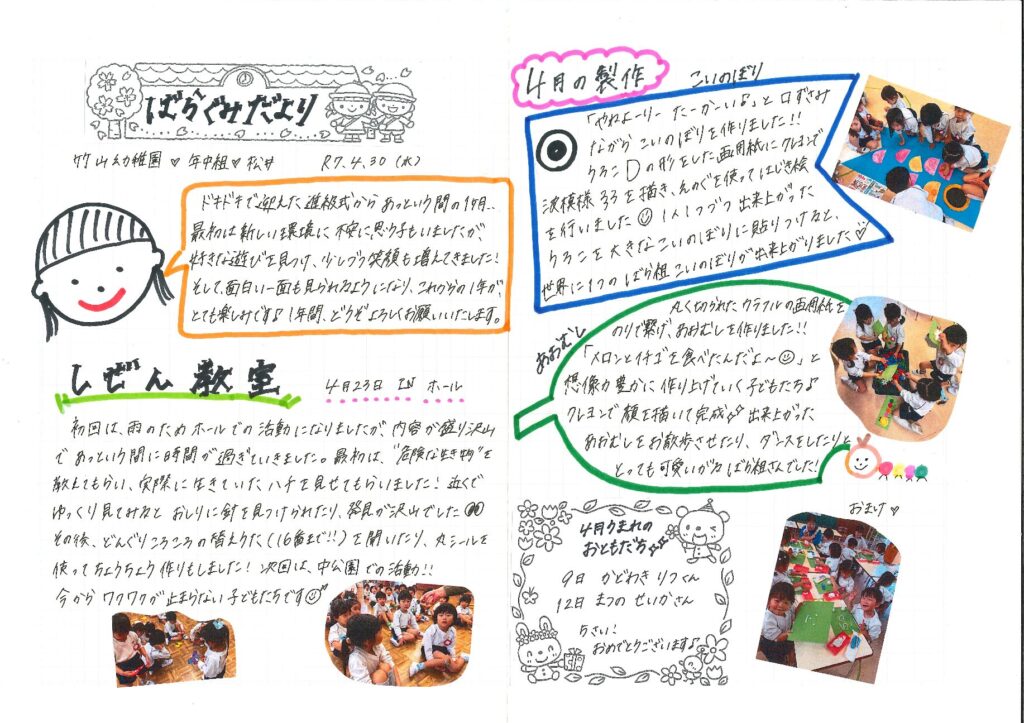 ばらぐみだより
竹山幼稚園 ♡ 年中組 ♡ 松井 R7.4.30(水)
ドキドキで迎えた進級式からあっという間の1ヶ月…
最初は新しい環境に不安に思う子もいましたが、
好きな遊びを見つけ、少しづつ笑顔も増えてきました!
そして、面白い一面も見られるようになり、これからの1年が、
とても楽しみです♪1年間、どうぞよろしくお願いいたします。
しぜん教室 4月23日 IN ホール
初回は、雨のためホールでの活動になりましたが、内容が盛り沢山
であっという間に時間が過ぎていきました。最初は、"危険な生き物"を
教えてもらい、実際に生きていたハチを見せてもらいました!近くで
ゆっくり見てみると おしりに針を見つけられたり、発見が沢山でした
その後、どんぐりころころの替えうた(16番まで!!)を聞いたり、丸シールを
使ってちょうちょう作りもしました!次回は、中公園での活動!!
今から ワクワクが止まらない子どもたちです
4月の製作
こいのぼり
「やねよーりー たーかーい♪」と口ずさみ
ながら こいのぼりを作りました!!
うろこDの形をした画用紙にクレヨンで
波模様 33を描き、えのぐを使ってはじき絵
を行いました 1人1つづつ出来上がった
うろこを大きなこいのぼりに貼りつけると、
世界に1つのばら組こいのぼりが出来上がりました♡
あおむし
丸く切られたカラフルの画用紙を
のりで繋げ、あおむしを作りました!!
「メロンとイチゴを食べたんだよ〜」と
想像力豊かに作り上げていく子どもたち♪
クレヨンで顔を描いて完成 出来上がった
あおむしをお散歩させたり、ダンスをしたりと
とっても可愛いがる ばら組さんでした!
4月うまれの
おともだち
9日 かどわき りつくん
12日 まつの せいかさん
5さい!
おめでとうございます♪
おまけ♡